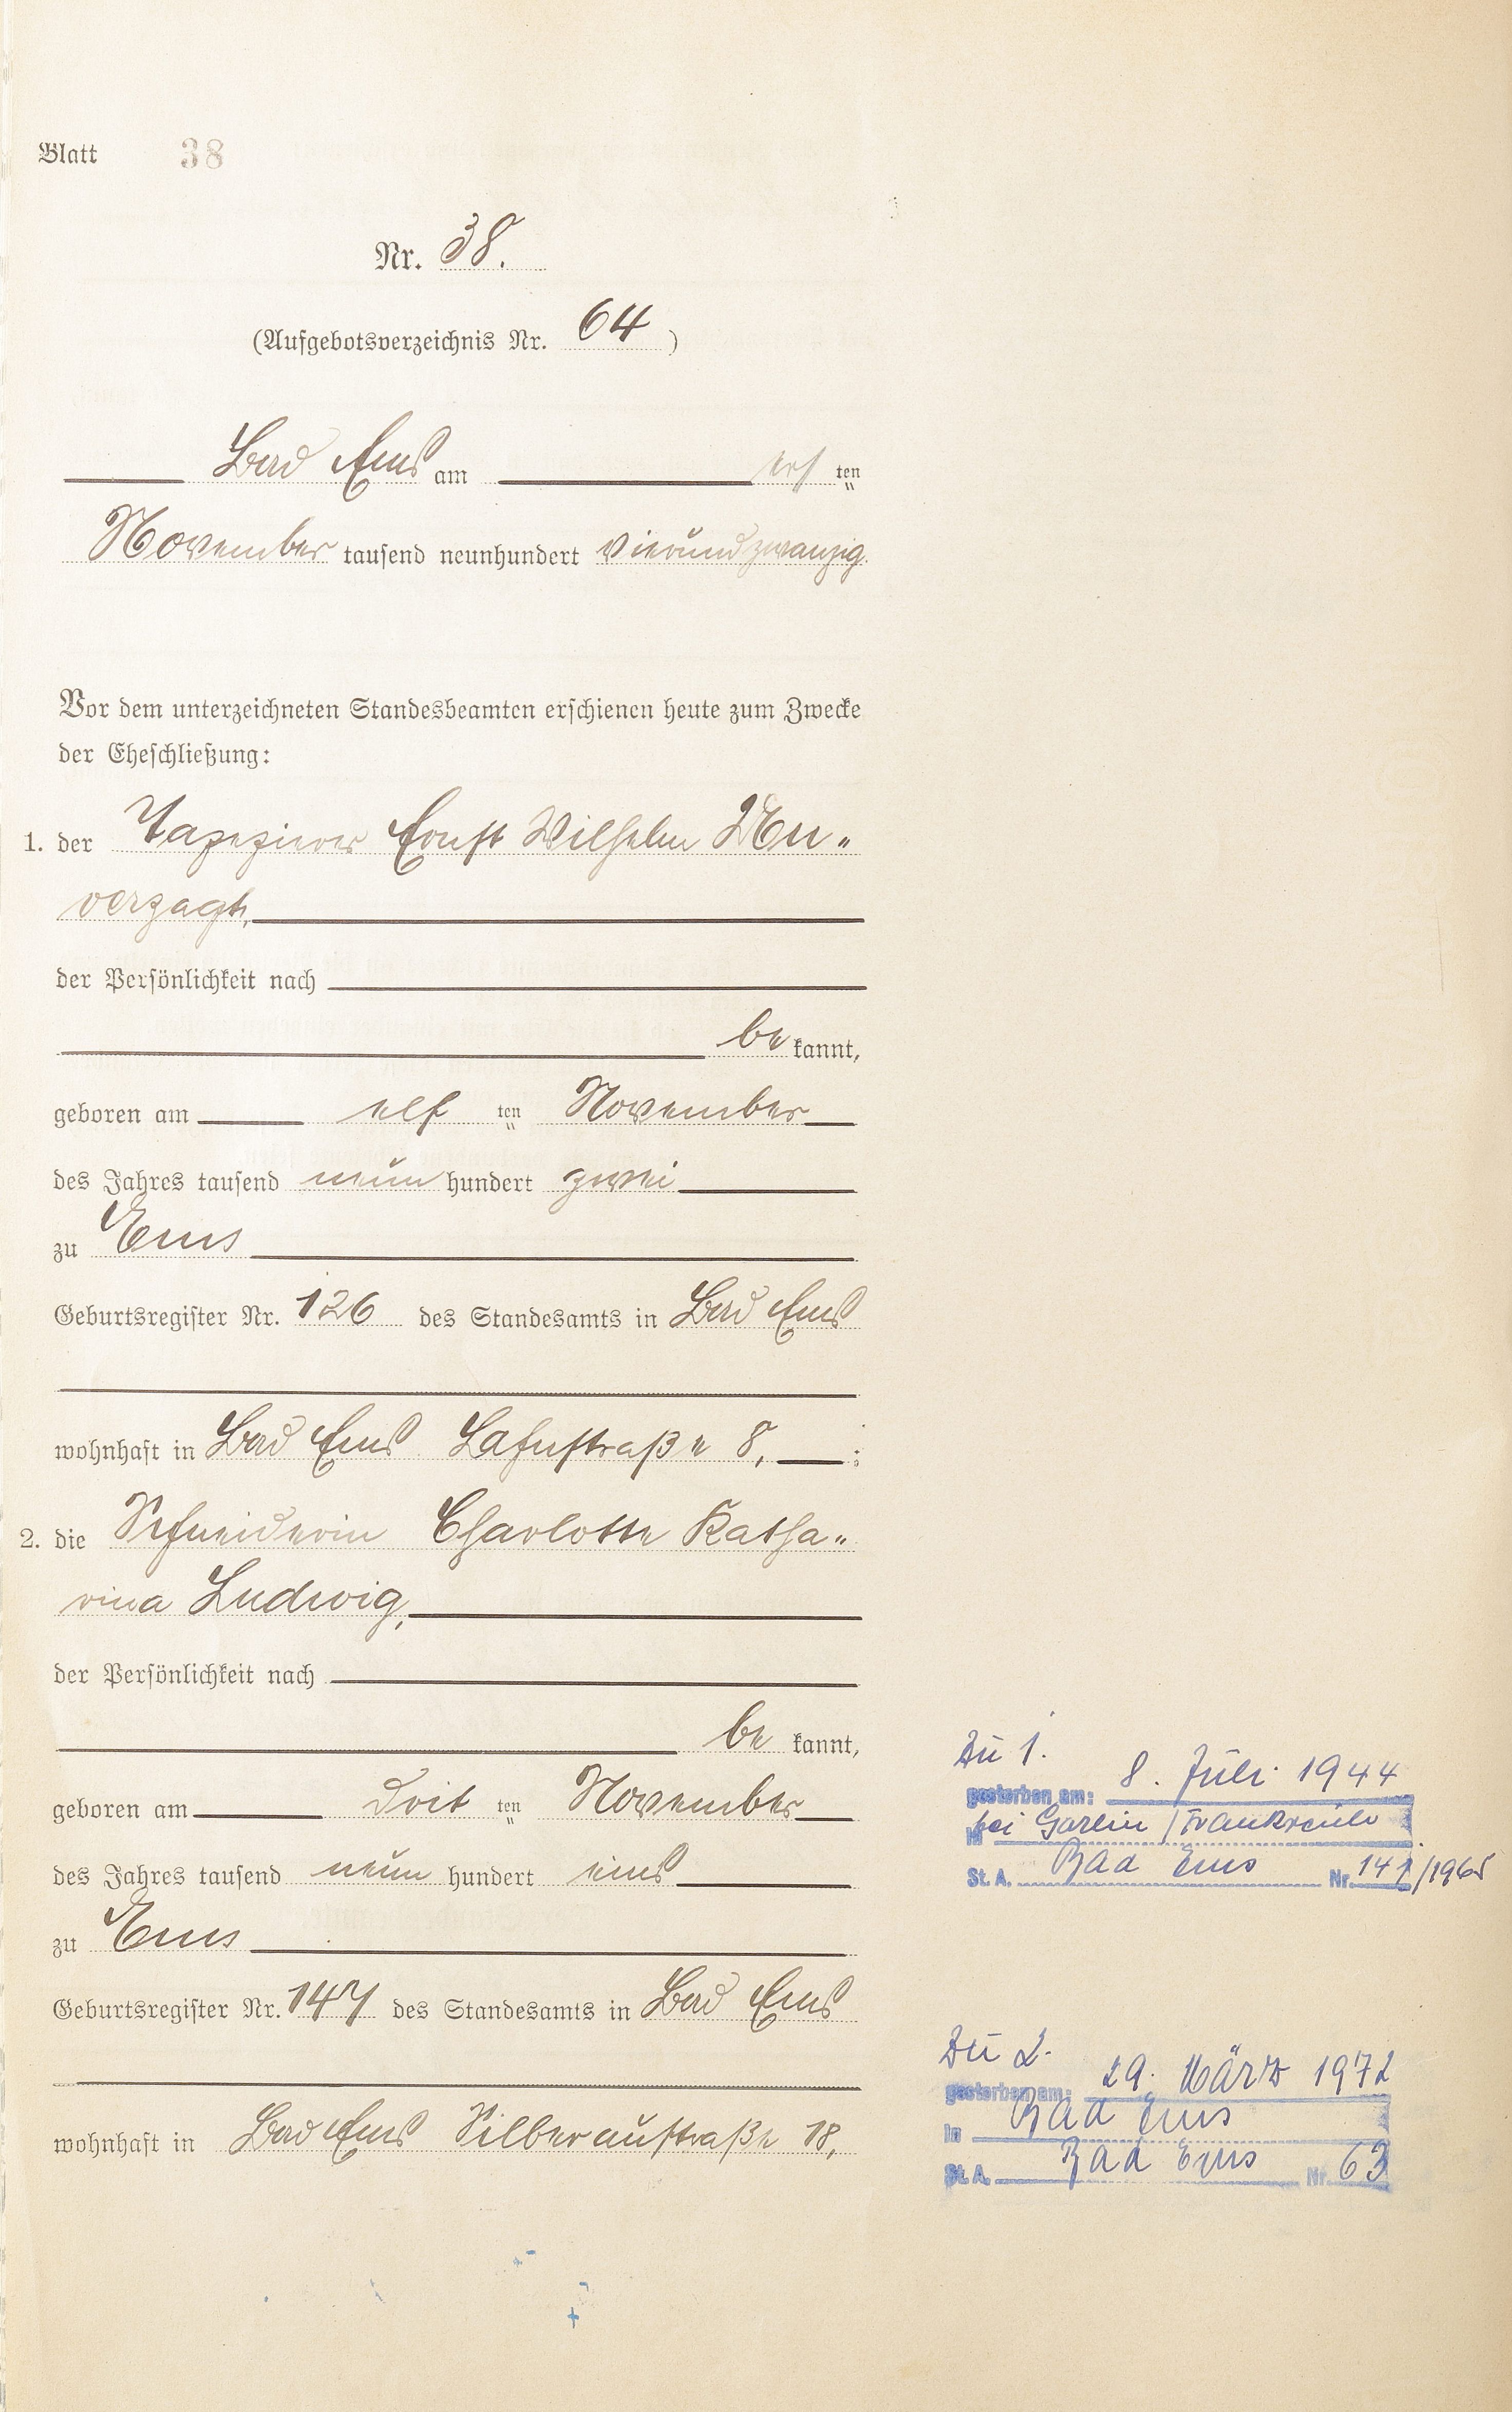 Blatt 38
Nr. 38.
(Aufgebotsverzeichnis Nr. 64)
Bad Ems am ersten
November tausend neunhundert vierundzwanzig.
Vor dem unterzeichneten Standesbeamten erschienen heute zum Zwecke
der Eheschließung:
1. der Tapezierer Ernst Wilhelm Un„
verzagt,
der Persönlichkeit nach
bekannt,
geboren am elf ten November
des Jahres tausend neunhundert zwei
zu Ems
Geburtsregister Nr. 126 des Standesamts in Bad Ems
wohnhaft in Bad Ems Lahnstraße 8, ;
2. die Schneiderin Charlotte Katha„
rina Ludwig,
der Persönlichkeit nach
bekannt,
geboren am drit ten November
des Jahres tausend neunhundert eins
zu Ems
Geburtsregister Nr. 147 des Standesamts in Bad Ems
wohnhaft in Bad Ems Silberaustraße 18,
Zu 1.
gestorben am: 8. Juli 1944
bei Garlin / Frankreich
St. A. Bad Ems Nr. 141/1965
Zu 2.
gestorben am: 29. März 1972
in Bad Ems
St. A. Bad Ems Nr. 63